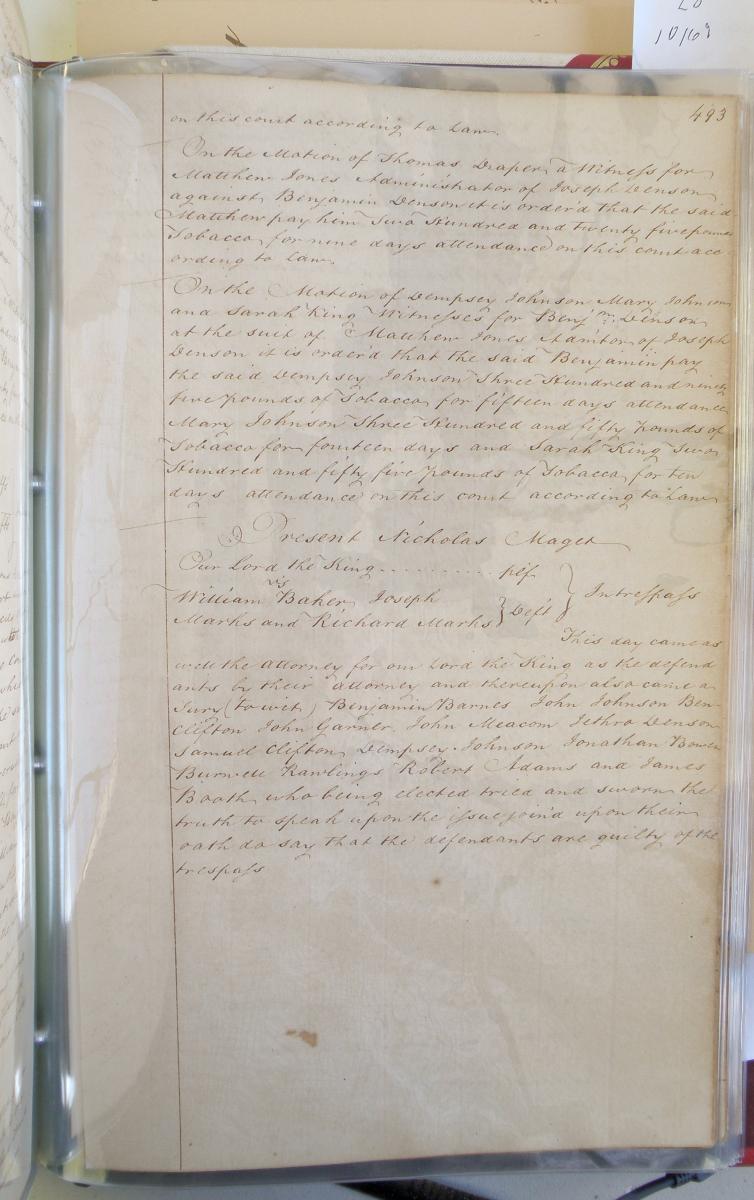 10/69
493
on this court according to Law.
On the Motion of Thomas Draper a Witness for
Matthew Jones Administrator of Joseph Denson
against Benjamin Denson it is order'd that the said
Matthew pay him Two Hundred and twenty five pounds
Tobacco for nine days attendance on this court acc
ording to Law.
On the Motion of Dempsey Johnson Mary Johnson
and Sarah King Witnesses for Benjm: Denson
at the suit of Matthew Jones Admitor of Joseph
Denson it is order'd that the said Benjamin pay
the said Dempsey Johnson Three Hundred and ninety
five pounds of Tobacco for fifteen days attendance
Mary Johnson Three Hundred and fifty pounds of
Tobacco for fourteen days and Sarah King Two
Hundred and fifty five pounds of Tobacco for ten
days attendance on this court according to Law
Present Nicholas Maget
Our Lord the King .......... plf
vs
William Baker Joseph
Marks and Richard Marks } Deft } In trespass
This day came as
well the attorney for our Lord the King as the defend
ants by their attorney and thereupon also came a
Jury (to wit) Benjamin Barnes John Johnson Ben
Clifton John Garner John Meacom Jethro Denson
Samuel Clifton Dempsey Johnson Jonathan Bowen
Burwell Rawlings Robert Adams and James
Booth who being elected tried and sworn the
truth to speak upon the issue join'd upon their
oath do say that the defendants are guilty of the
trespass